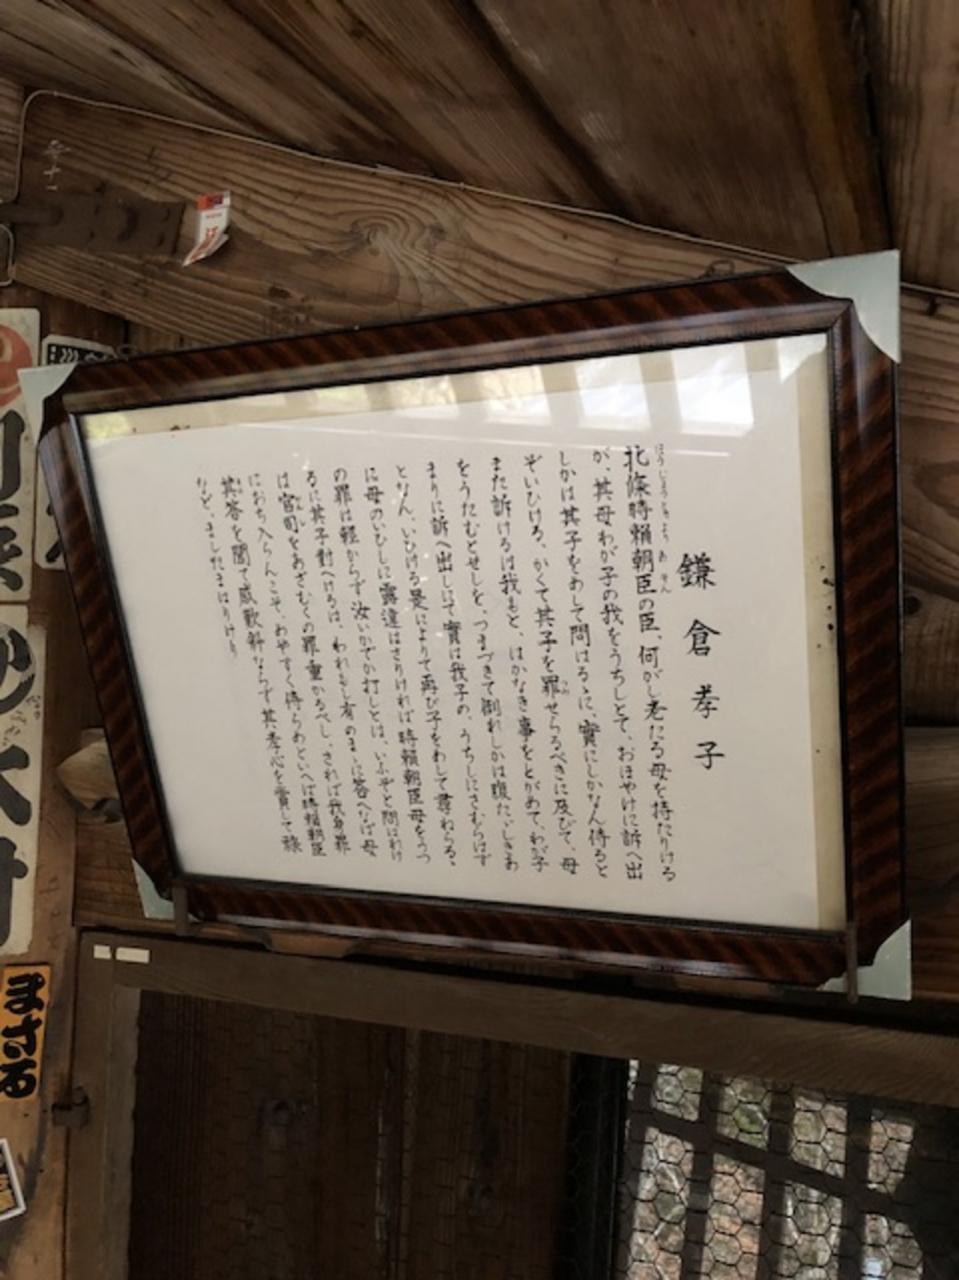 鎌倉孝子
北條時頼朝臣の臣、何がし老たる母を持たりける
が、其母わが子の我をうちしとて、おほやけに訴へ出
しかは其子をめして問はるゝに、實にしかなん侍ると
ぞいひける、かくて其子を罪せらるべきに及びて、母
また訴けるは我もと、はかなき事をとがめて、わが子
をうたむとせしを、つまづきて倒れしかは腹たゝしきあ
まりに訴へ出しにて實は我子の、うちしにさむらはず
となん、いひける是によりて再び子をめして尋ねらる、
に母のいひしに露違はさりければ時頼朝臣母をうつ
の罪は軽からず汝いかでか打しとは、いふぞと問はれけ
るに其子對へけるは、われもし有のまゝに答へなば母
は宮司をあざむくの罪重かるべし、されば我身罪
におち入らんこそ、めやすく侍らめといへば時頼朝臣
其答を聞て感歎斜ならず其孝心を賞して禄
など、ましたまはりけり
まさる